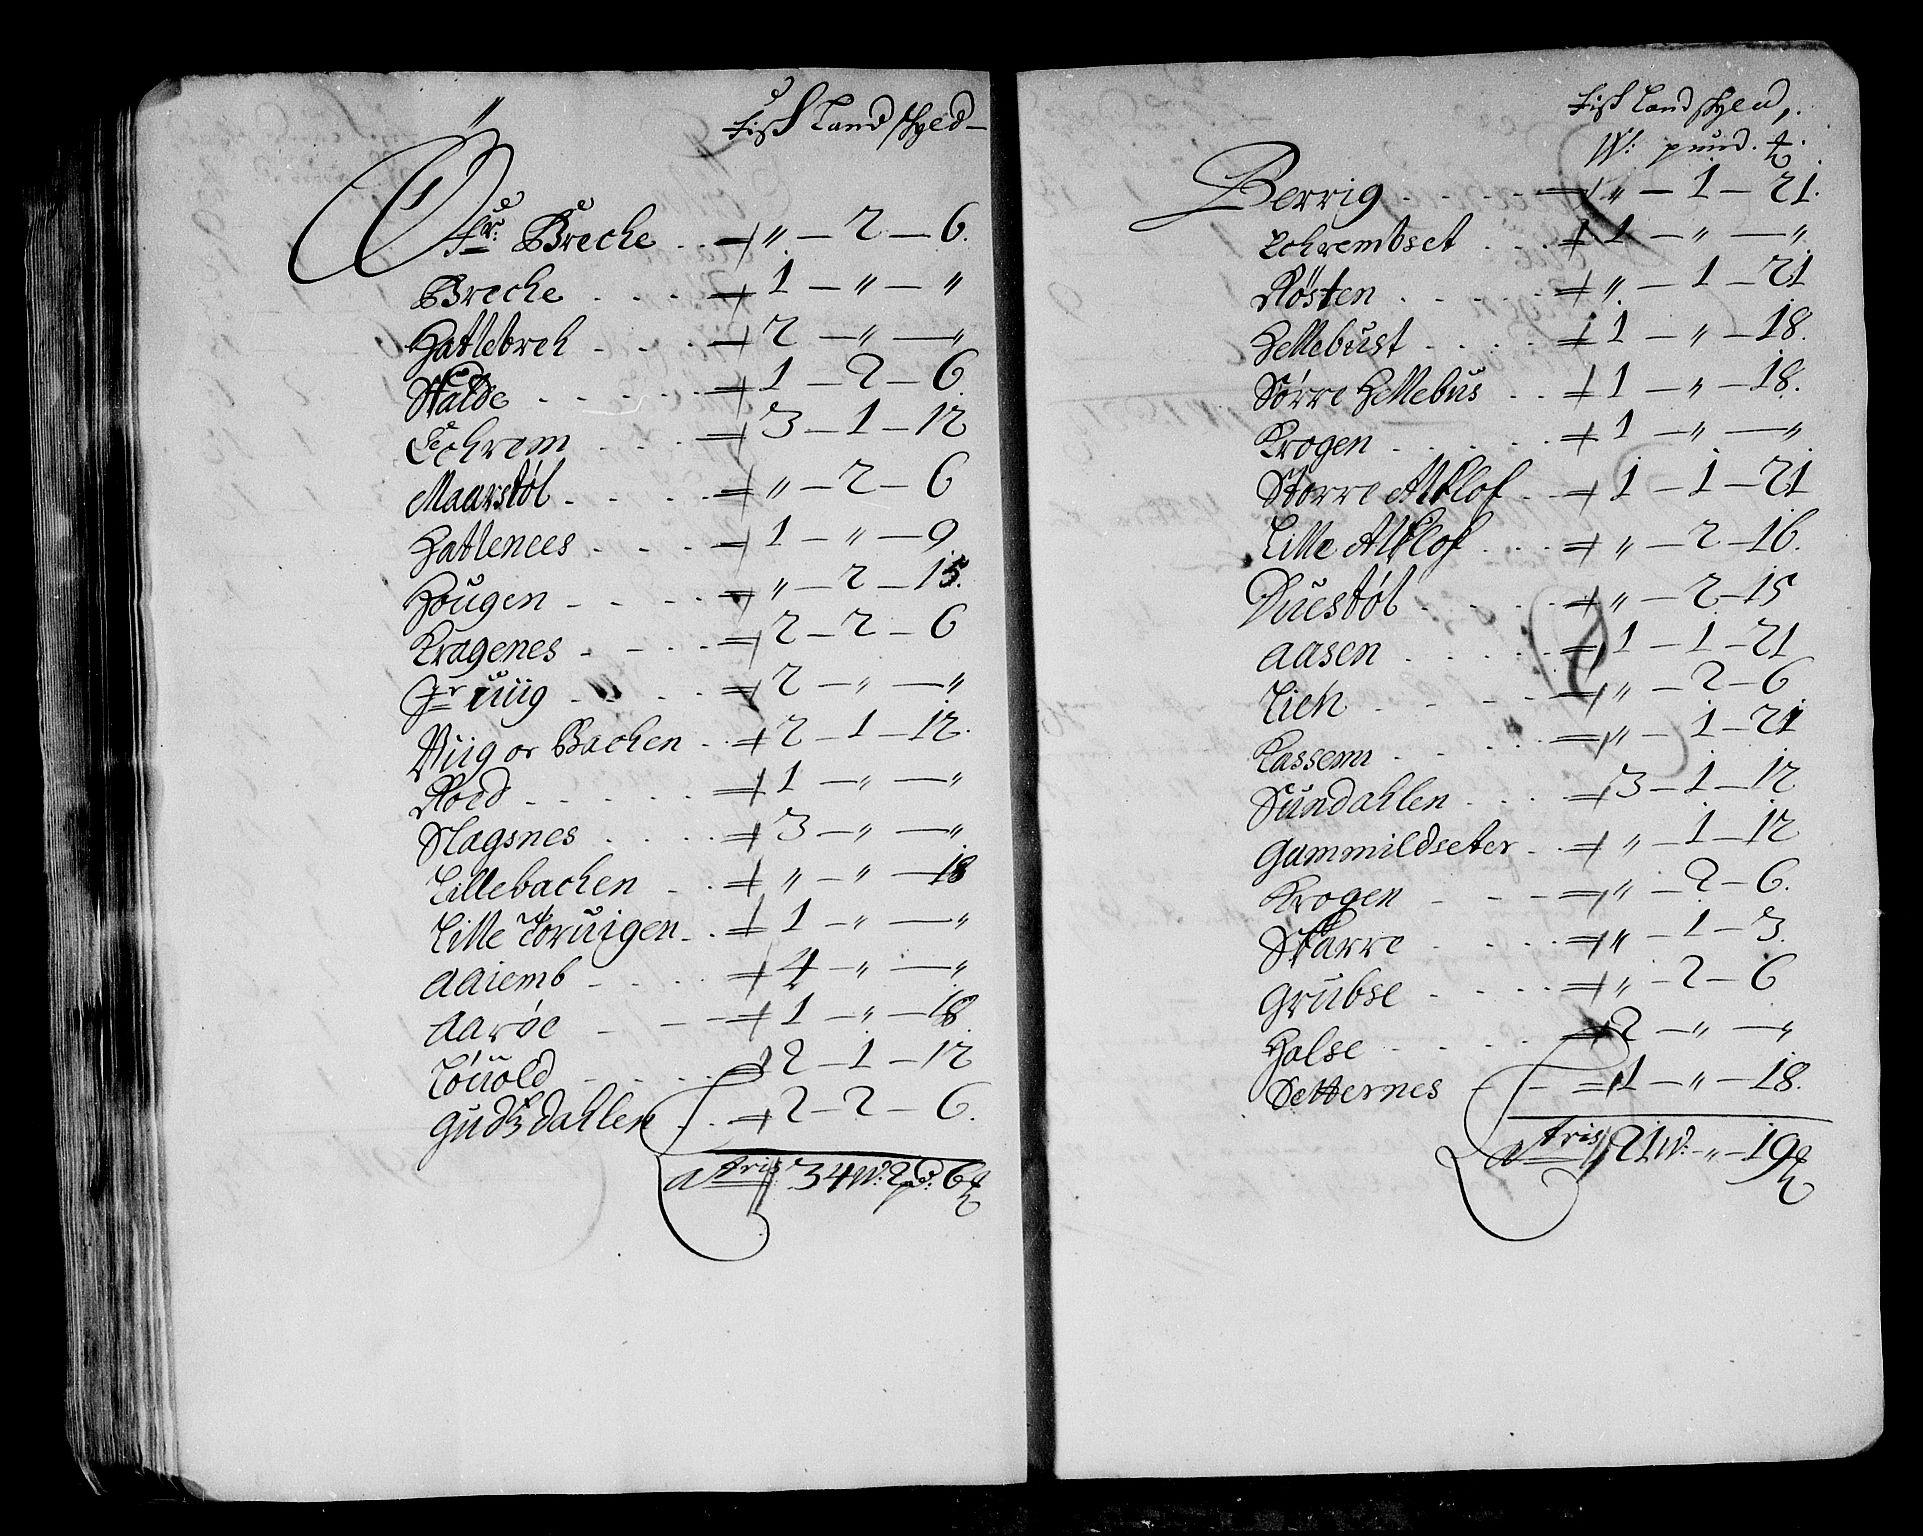 Fisk Land skyld
Øfr: Breche . . „ — 2 — 6.
Breche . . . . 1 — „ — „
Hatlebreh . . . . 2 — „ — „
Walde . . . . . 1 — 2 — 6
Echrem . . . . 3 — 1 — 12
Maarstøl . . . . „ — 2 — 6
Hatlenees . . . . 1 — „ — 9
Hougen . . . . „ — 2 — 15.
Kragenes . . . . 2 — 2 — 6
2 — „ — „
Wiig or Bachen . . 2 — 1 — 12.
Roed . . . . . 1 — „ — „
Slagsnes . . . . 3 — „ — „
Lillebachen . . „ — „ — 18
Lille Toruigen . . 1 — „ — „
Aaiemb . . . . 4 — „ — „
Aarøe . . . . 1 — „ — 18
Løuold . . . . 2 — 1 — 12
Gudsdahlen . . 2 — 2 — 6.
34 W: 2 pd: 6 ℔
Fisk Land skyld,.
W: pund. ℔.
Berrig . . . . „ — 1 — 21.
Echrembset . . . 1 — „ — „
Røsten . . . . . „ — 1 — 21
Hellebust . . . . 1 — „ — 18.
Større Hellebus . . 1 — „ — 18.
Krogen . . . . . 1 — „ — „
Storre Alflof . . 1 — 1 — 21
Lille Alflof . . . „ — 2 — 16.
Duestøl . . . . „ — 2 — 15
Aasen . . . . . 1 — 1 — 21
Lieh . . . . „ — 2 — 6
Kassemi . . . . „ — 1 — 21
Sundahlen . . . . 3 — 1 — 12
Gammildseter . . „ — 1 — 12
Krogen . . . „ — 2 — 6.
Skarre . . . . „ — 1 — 3.
Grubse . . . . „ — 2 — 6
Halse . . . . . 2 — „ — „
Setternes . . 1 — „ — 18.
21 W: — „ — 19 ℔